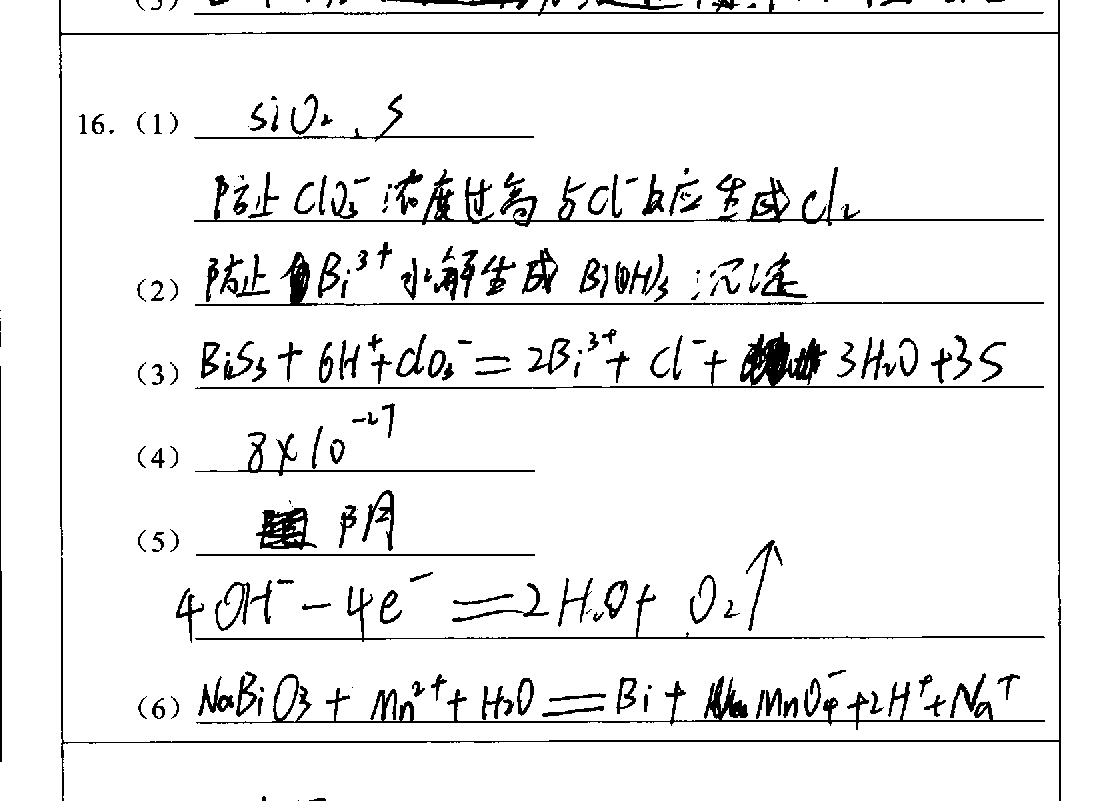 16.（1） SiO₂、S
防止ClO₃⁻浓度过高与Cl⁻反应生成Cl₂
（2） 防止Bi³⁺水解生成Bi(OH)₃沉淀
（3） BiS₃ + 6H⁺+ClO₃⁻ = 2Bi³⁺ + Cl⁻ + 3H₂O +3S
（4） 8×10⁻²⁷
（5） 阴
4OH⁻ − 4e⁻ = 2H₂O + O₂↑
（6） NaBiO₃ + Mn²⁺ + H₂O = Bi + MnO₄⁻ +2H⁺+Na⁺